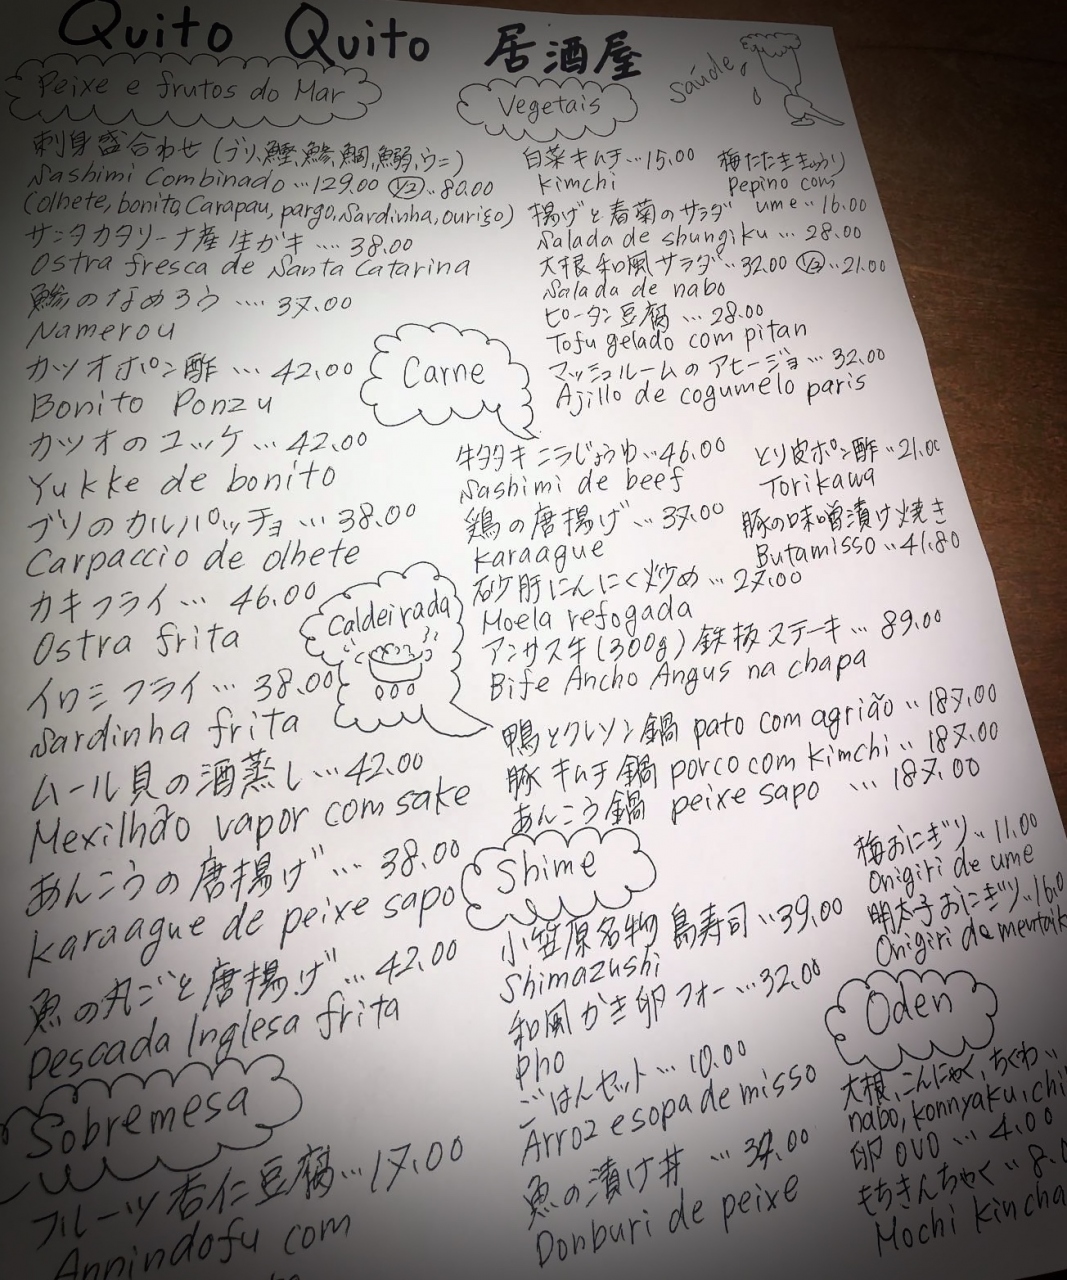 Quito Quito 居酒屋
Saúde
Peixe e frutos do Mar
刺身盛合わせ (ブリ,鰹,鯵,鯛,鰯,ウニ)
Sashimi Combinado ... 129.00 1/2 .. 80.00
(olhete, bonito, Carapau, pargo, Sardinha, ouriço)
サンタカタリーナ産生ガキ .... 38.00
Ostra fresca de Santa Catarina
鯵のなめろう .... 37.00
Namerou
カツオポン酢 ... 42.00
Bonito Ponzu
カツオのユッケ ... 42.00
Yukke de bonito
ブリのカルパッチョ ... 38.00
Carpaccio de olhete
カキフライ ... 46.00
Ostra frita
イワシフライ ... 38.00
Sardinha frita
ムール貝の酒蒸し ... 42.00
Mexilhão vapor com sake
あんこうの唐揚げ ... 38.00
Karaague de peixe sapo
魚の丸ごと唐揚げ ... 42.00
Pescada Inglesa frita
Sobremesa
フルーツ杏仁豆腐 ... 17.00
Annindofu com
Vegetais
白菜キムチ ... 15.00
Kimchi
梅たたききゅうり
Pepino com
ume .. 16.00
揚げと春菊のサラダ
Salada de shungiku ... 28.00
大根和風サラダ .. 32.00 1/2 .. 21.00
Salada de nabo
ピータン豆腐 ... 28.00
Tofu gelado com pitan
マッシュルームのアヒージョ ... 32.00
Ajillo de cogumelo paris
Carne
牛タタキニラじょうゆ .. 46.00
Sashimi de beef
とり皮ポン酢 .. 21.00
Torikawa
鶏の唐揚げ ... 37.00
Karaague
豚の味噌漬け焼き
Butamisso .. 41.80
砂肝にんにく炒め ... 27.00
Moela refogada
アンガス牛(300g)鉄板ステーキ ... 89.00
Bife Ancho Angus na chapa
Caldeirada
鴨とクレソン鍋 pato com agrião .. 187.00
豚キムチ鍋 porco com kimchi .. 187.00
あんこう鍋 peixe sapo ... 187.00
Shime
小笠原名物 島寿司 .. 39.00
Shimazushi
和風かき卵フォー ... 32.00
Pho
ごはんセット ... 10.00
Arroz e sopa de misso
魚の漬け丼 ...
Donburi de peixe
梅おにぎり .. 11.00
Onigiri de ume
明太子おにぎり .. 16.0
Onigiri de mentaik
Oden
大根,こんにゃく,ちくわ ..
nabo, Konnyaku, chi
卵 ovo ... 4.00
もちきんちゃく .. 8.
Mochi Kincha